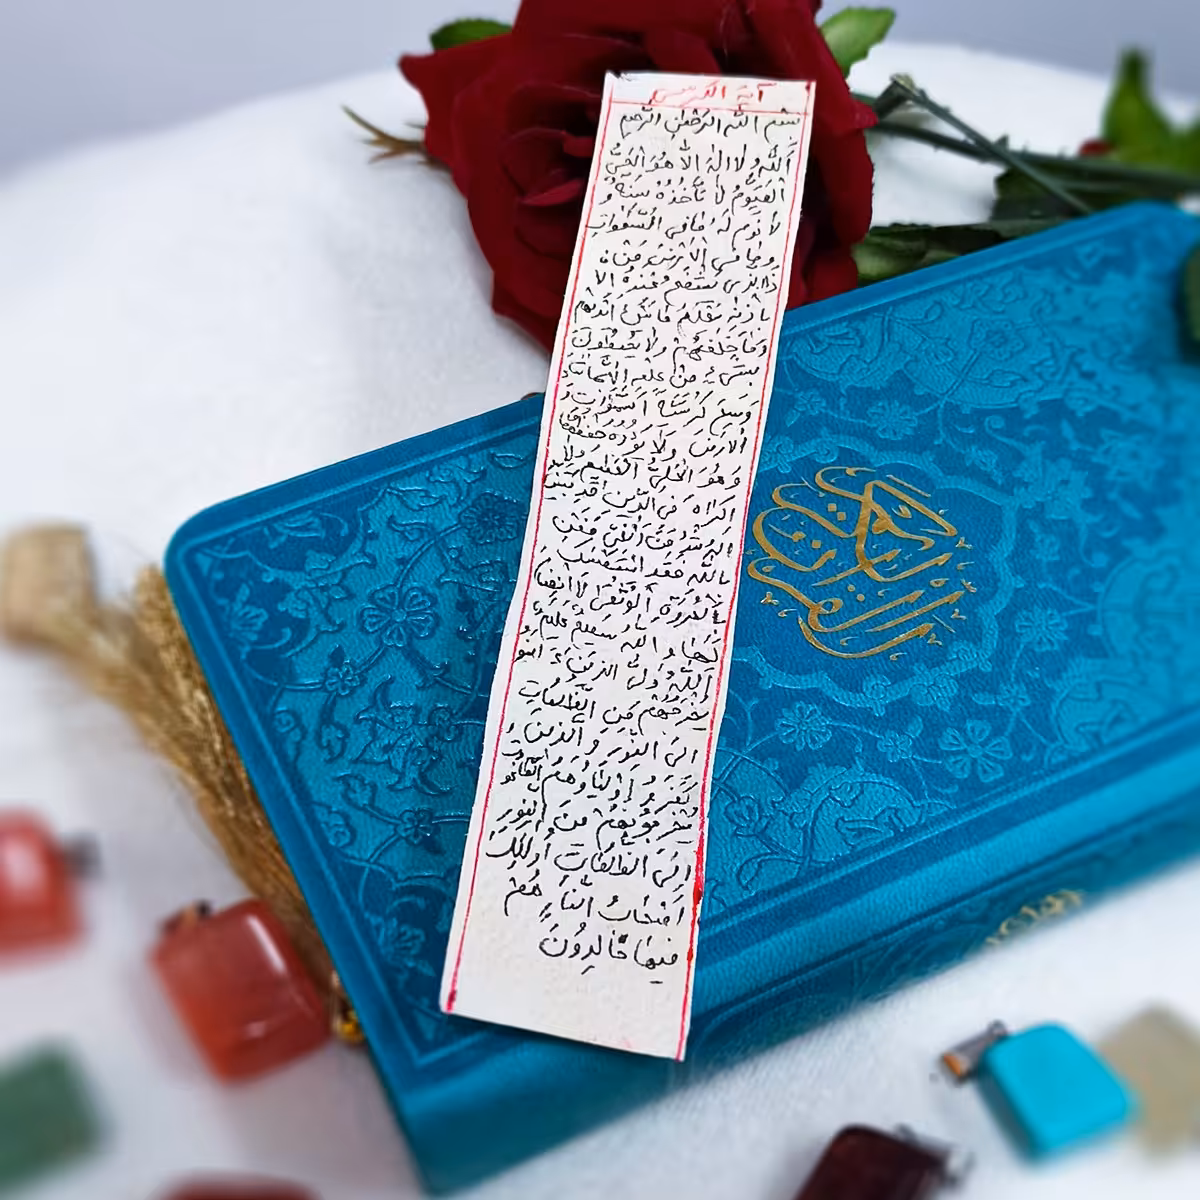 آية الكرسي
بسم الله الرحمن الرحيم
ألله لا اله الا هو الحي
القيوم لا تأخذه سنة و
لا نوم له ما في السموات
وما في الارض من
ذالذي يشفع عنده الا
باذنه يعلم ما بين ايديهم
وما خلفهم ولا يحيطون
بشيء من علمه الا بما شاء
وسع كرسيه السموات و
الارض ولا يؤده حفظهما
وهو العلي العظيم لا
اكراه في الدين قد تبين
الرشد من الغي فمن
بالله فقد استمسك
بالعروة الوثقى لا انفصام
لها و الله سميع عليم
الله ولي الذين ءامنو
يخرجهم من الظلمات
الى النور و الذين
كفرو أوليآؤهم الطاغوت
يخرجونهم من النور
الى الظلمات أولئك
أصحاب النار هم
فيها خالدون
القرآن الكريم